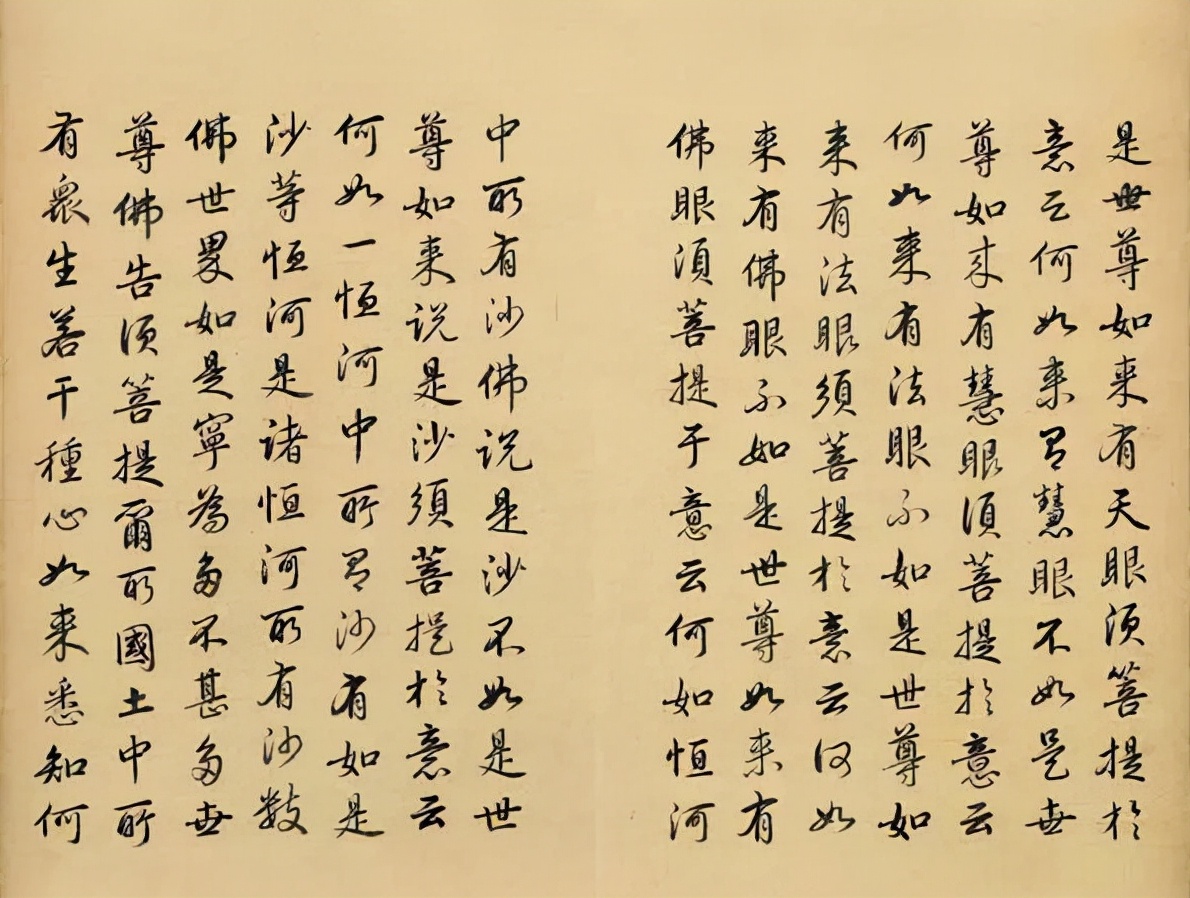 是世尊如来有天眼須菩提於
意云何如来有慧眼不如是世
尊如来有慧眼須菩提於意云
何如来有法眼不如是世尊如
来有法眼須菩提於意云何如
来有佛眼不如是世尊如来有
佛眼須菩提于意云何如恒河
中所有沙佛說是沙不如是世
尊如来說是沙須菩提於意云
何如一恒河中所有沙有如是
沙等恒河是諸恒河所有沙數
佛世界如是寧為多不甚多世
尊佛告須菩提爾所國土中所
有衆生若干種心如来悉知何